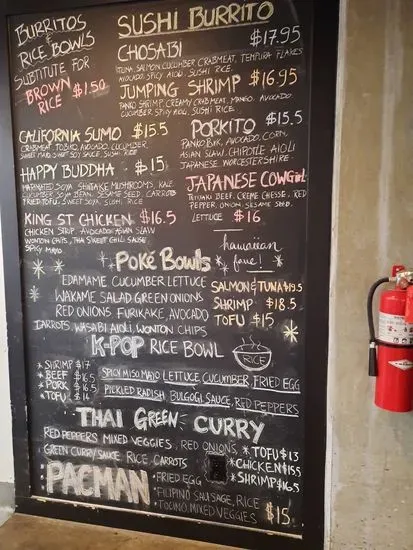 BURRITOS
&
RICE BOWLS
SUBTITUTE FOR
BROWN
RICE $1.50
SUSHI BURRITO
CHOSABI $17.95
TUNA, SALMON, CUCUMBER, CRABMEAT, TEMPURA FLAKES
AVOCADO, SPICY AIOLI, SUSHI RICE
JUMPING SHRIMP $16.95
PANKO SHRIMP, CREAMY CRABMEAT, MANGO, AVOCADO
CUCUMBER, SPICY AIOLI, SUSHI RICE
CALIFORNIA SUMO $15.5
CRABMEAT, TOBIKO, AVOCADO, CUCUMBER,
SWEET SOY SAUCE, SUSHI RICE
PORKITO $15.5
PANKO PORK, AVOCADO, CORN,
ASIAN SLAW, CHIPOTLE AIOLI
JAPANESE WORCESTERSHIRE
HAPPY BUDDHA $15
MARINATED SOYA SHIITAKE MUSHROOMS, KALE
CUCUMBER, SOYA BEAN, SESAME SEED, CARROTS
FRIED TOFU, SWEET SOYA, SUSHI RICE
JAPANESE COWGirL
TERIYAKI BEEF, CREME CHESSE, RED
PEPPER, ONION, SESAME SEED
LETTUCE $16
KING ST CHICKEN $16.5
CHICKEN STRIP, AVOCADO, ASIAN SLAW
WONTON CHIPS, THAI SWEET CHILI SAUSE
SPICY MAYO
POKÉ BOWLS
hawaiian
fave!
EDAMAME CUCUMBER LETTUCE
WAKAME SALAD GREEN ONIONS
RED ONIONS FURIKAKE, AVOCADO
CARROTS, WASABI AIOLI, WONTON CHIPS
SALMON & TUNA $19.5
SHRIMP $18.5
TOFU $15
K-POP RICE BOWL
RICE
* SHRIMP $17
* BEEF $16.5
* PORK $16.5
* TOFU $14
SPICY MISO MAYO, LETTUCE CUCUMBER, FRIED EGG
PICKLED RADISH, BULGOGI SAUCE, RED PEPPERS
THAI GREEN CURRY
RED PEPPERS MIXED VEGGIES, RED ONIONS
GREEN CURRY SAUCE RICE CARROTS
* TOFU $13
* CHICKEN $15.5
* SHRIMP $16.5
PACMAN
* FRIED EGG
* FILIPINO SAUSAGE, RICE
* TOCINO, MIXED VEGGIES $15